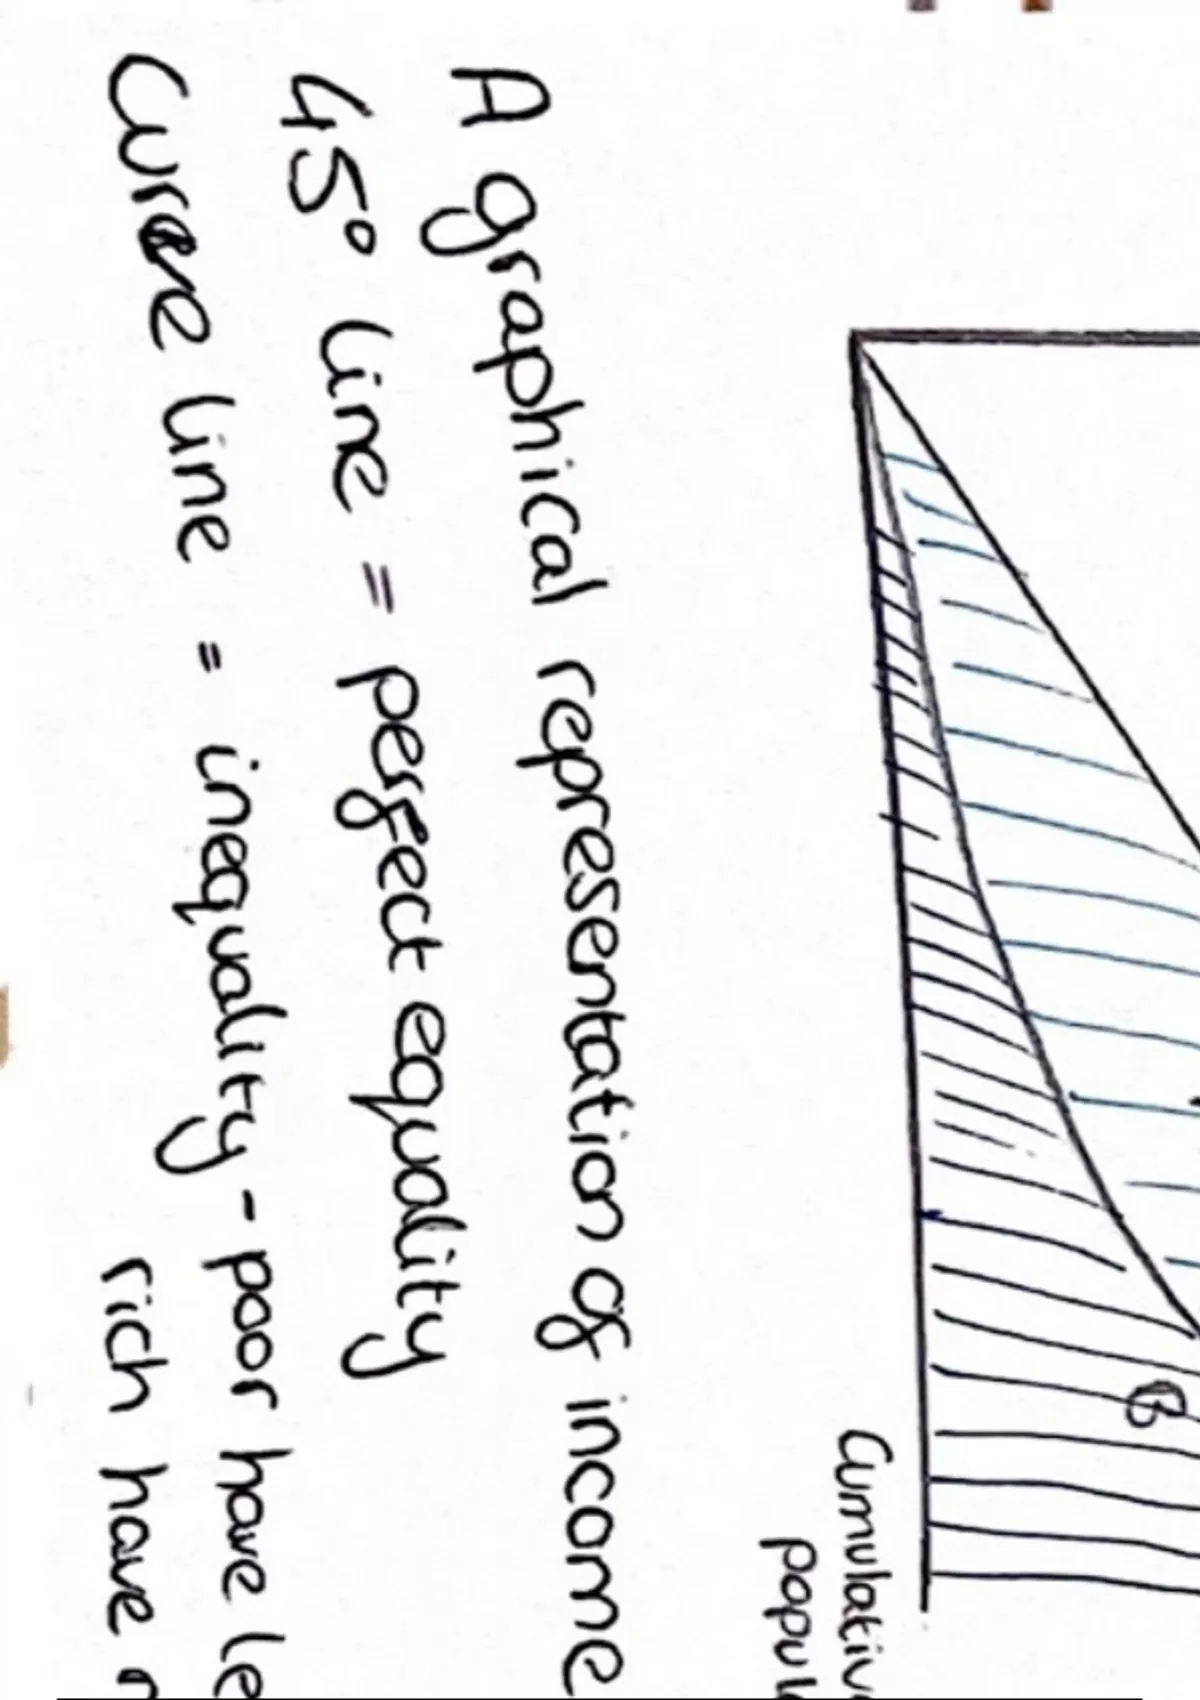 B
Cumulativ
popul
A graphical representation of income
45° line = perfect equality
Curve line = inequality - poor have le
rich have